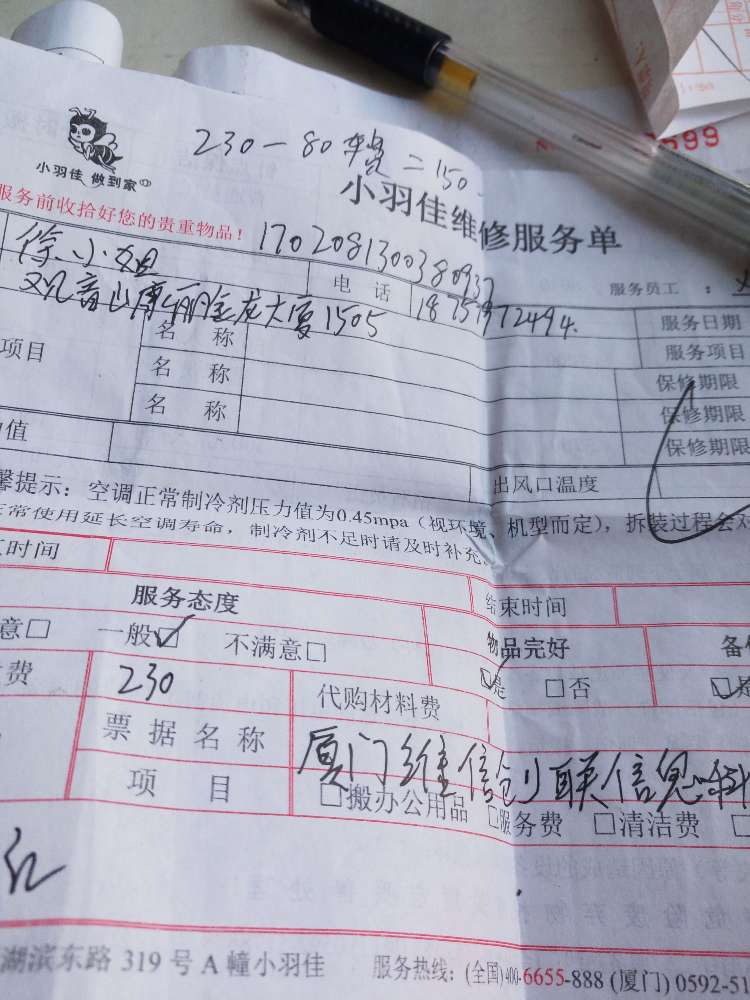 599
230-80车费=150
小羽佳 做到家
小羽佳维修服务单
服务前收拾好您的贵重物品!
170208130038093
徐小姐
电 话
服务员工:
观音山康丽金龙大厦1505
服务日期
项目
名 称
服务项目
名 称
保修期限
名 称
保修期限
保修期限
值
出风口温度
馨提示:空调正常制冷剂压力值为0.45mpa(视环境、机型而定),拆装过程会对
正常使用延长空调寿命,制冷剂不足时请及时补充。
时间
结束时间
服务态度
物品完好
意□ 一般☑ 不满意□
☑是 □否
费
230
代购材料费
票据名称
厦门维信创联信息科
项 目
□搬办公用品 □服务费 □清洁费 □
湖滨东路 319 号 A 幢小羽佳 服务热线:(全国)400-6655-888 (厦门) 0592-51